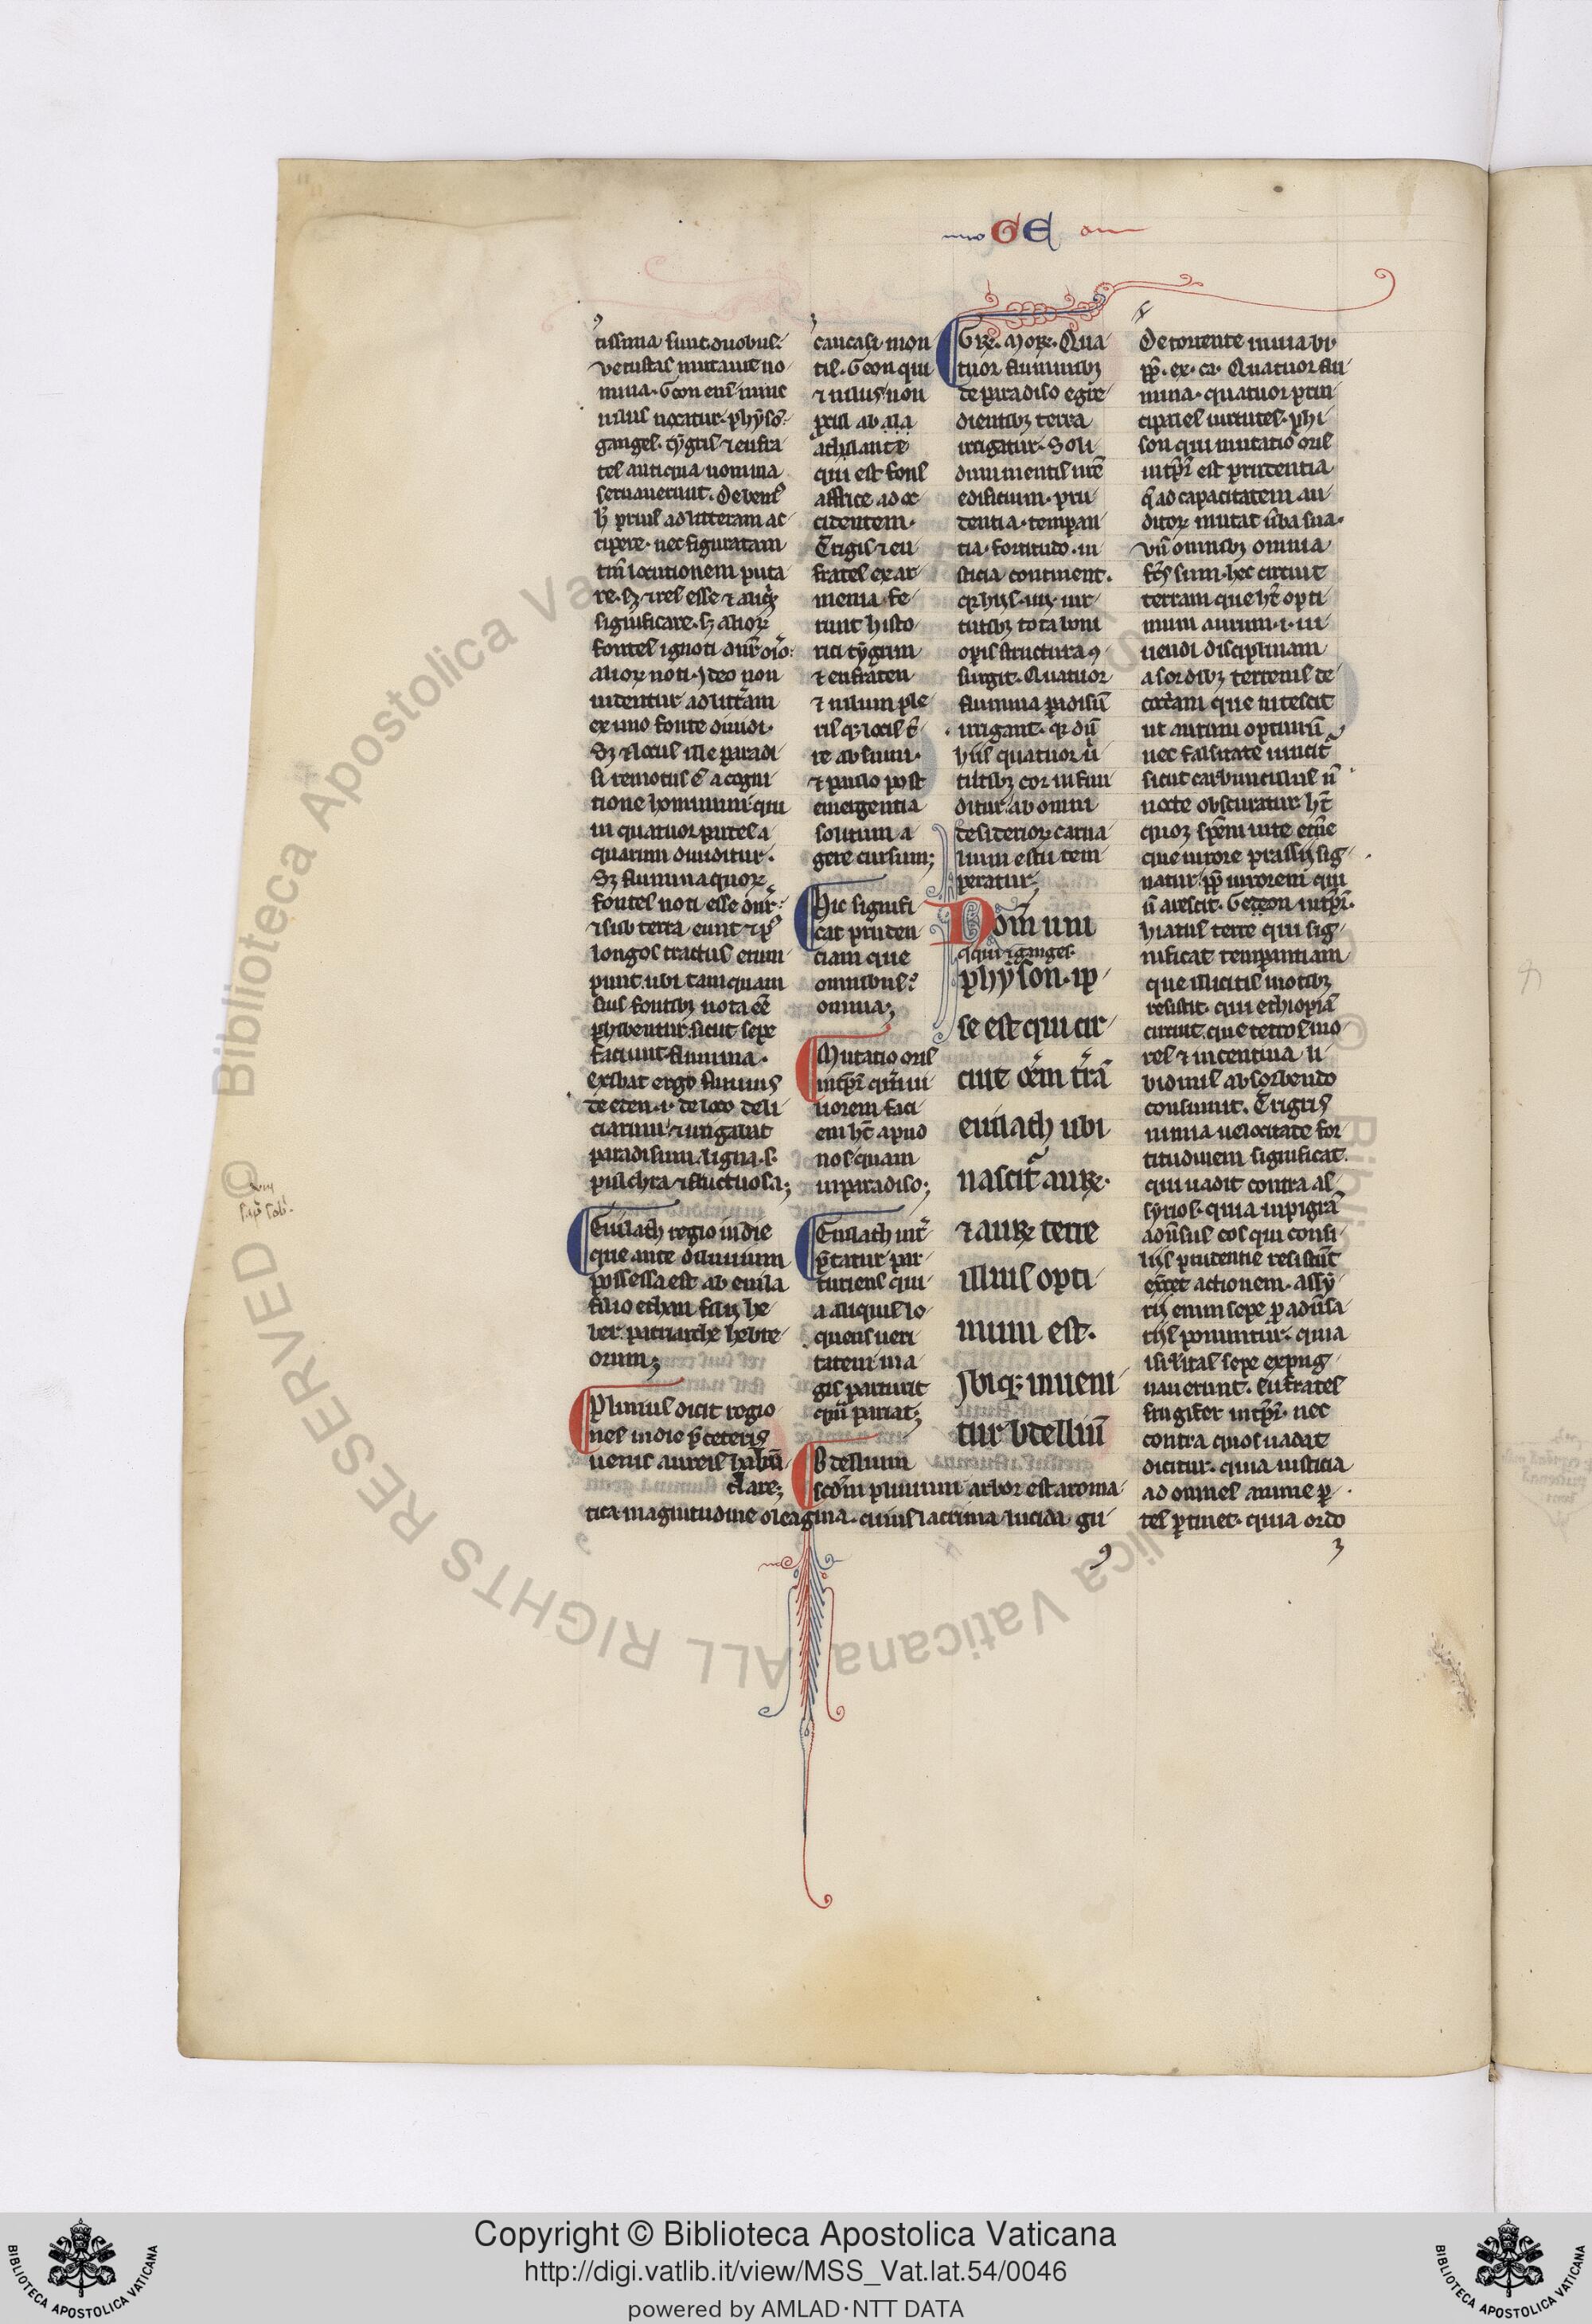 GE
tissima sunt. duobus.
vetustas mutauit no
mina. Geon eni nunc
nilus uocatur. physo.
ganges. tygris 7 eufra
tes antiqua nomina
seruauerunt. Debemꝰ
h̅ prius ad litteram ac
cipere. nec figuratam
tm̅ locutionem puta
re. sꝫ 7 res esse 7 aliqͥd
significare. sꝫ alioꝝ
fontes ignoti dn̅r oīo.
alioꝝ noti. Ideo non
uidentur ad litt̅am
ex uno fonte diuidi.
Sꝫ 7 locus ille paradi
si remotus e̅ a cogni
tione hominum. qui
in quatuor partes a
quarum diuiditur.
Sꝫ flumina quoꝝ
fontes noti esse dn̅r.
7 sub terra eunt 7 ꝑ
longos tractus erum
punt. ubi tamquam
suis fontibꝫ nota ee̅
perhibentur. sicut sepe
faciunt flumina.
exibat ergo fluuius
de eden .i. de loco deli
ciarum. 7 irrigabat
paradisum. ligna .s.
pulchra 7 fructuosa;
Euilach regio indie
que ante diluuium
possessa est ab euila
filio ethan filii he
ber. patriarche hebre
orum;
Plinius dicit regio
nes indie p̅ ceteris
uenis aureis habun̅
clare;
caucasi. mon
tis. Geon qui
7 nilus non
procul ab ala
athlante
qui est fons
affrice ad oc
cidentem.
Tigris 7 eu
frates ex ar
menia. fe
runt histo
rici tygrim
7 eufraten
7 nilum ple
ris qꝫ locis t̅
re absumi.
7 paulo post
emergentia
solitum a
gere cursum;
Hic signifi
cat pruden
ciam que
omnibus.
omnia;
Mutatio oris
int̅p̅r qm̅ ui
liorem faci
em ht̅ apud
nos quam
in paradiso;
Euilach int̅
p̅tatur par
turiens qui
a aliquis lo
quens ueri
tatem ma
gis parturit
qua̅ pariat;
Bdellium
scd̅m plinium arbor est aroma
tica magnitudine oleagina. cuius lacrima lucida gu
Gre. Moꝝ. Qua
tuor fluminibꝫ
de paradiso egre
dientibꝫ terra
irrigatur. Soli
dum mentis nr̅e
edificium. pru
dentia. temperan
tia. fortitudo. iu
sticia continent.
qꝛ hiis .iiij. uir
tutibꝫ tota boni
operis structura ꝯ
surgit. Quatuor
flumina paradisu̅
irrigant. qꝛ du̅
hiis quatuor uͥ
tutibꝫ cor infun
ditur. ab omni
desiderioꝝ carna
lium estu tem
peratur;
Nom̅ uni
qui 7 ganges.
physon. ip
se est qui cir
cuit oe̅m tr̅a̅
euilach ubi
nascit̅ auꝝ.
7 auꝝ terre
illius opti
mum est.
Ibiqꝫ inueni
tur bdelliu̅
De torrente in uia bi
pp̅. ex. ca. Quatuor flu
mina. quatuor prin
cipales uirtutes. phi
son qui mutatio oris
int̅p̅r est prudentia
q̅ ad capacitatem au
ditoꝝ mutat u̅ba sua.
vn̅ omnibꝫ omnia
fc̅s sum. hec circuit
terram que ht̅ opti
mum aurum .i. ui
uendi disciplinam
a sordibꝫ terrenis de
coctam que nitescit
ut aurum optimu̅
nec falsitate uincit̅
sicut carbunculus n̅
nocte obscuratur ht̅
quoqꝫ spe̅m uite et̅ne
que uirore prassii sig
natur. pp̅ uirorem qui
n̅ arescit. Gedeon int̅p̅r.
hiatus terre qui sig
nificat temperantiam
que illicitis motibꝫ
resistit. qui ethiopia̅
circuit. que tetros mo
res 7 incentiua li
bidinis absorbendo
consumit. Tigris
nimia uelocitate for
titudinem significat.
qui uadit contra as
syrios. quia inpigra̅
adu̅sus eos qui consi
liis prudentie resistu̅t
exercet actionem. assy
rii enim sepe pro adu̅sa
riis ponuntur. quia
isrl̅itas sepe expug
nauerunt. Eufrates
frugifer int̅p̅r. nec
contra quos uadat
dicitur. quia iusticia
ad omnes anime ꝑ
tes ꝑtinet. quia ordo
Copyright © Biblioteca Apostolica Vaticana
http://digi.vatlib.it/view/MSS_Vat.lat.54/0046
powered by AMLAD·NTT DATA
BIBLIOTECA APOSTOLICA VATICANA
BIBLIOTECA APOSTOLICA VATICANA